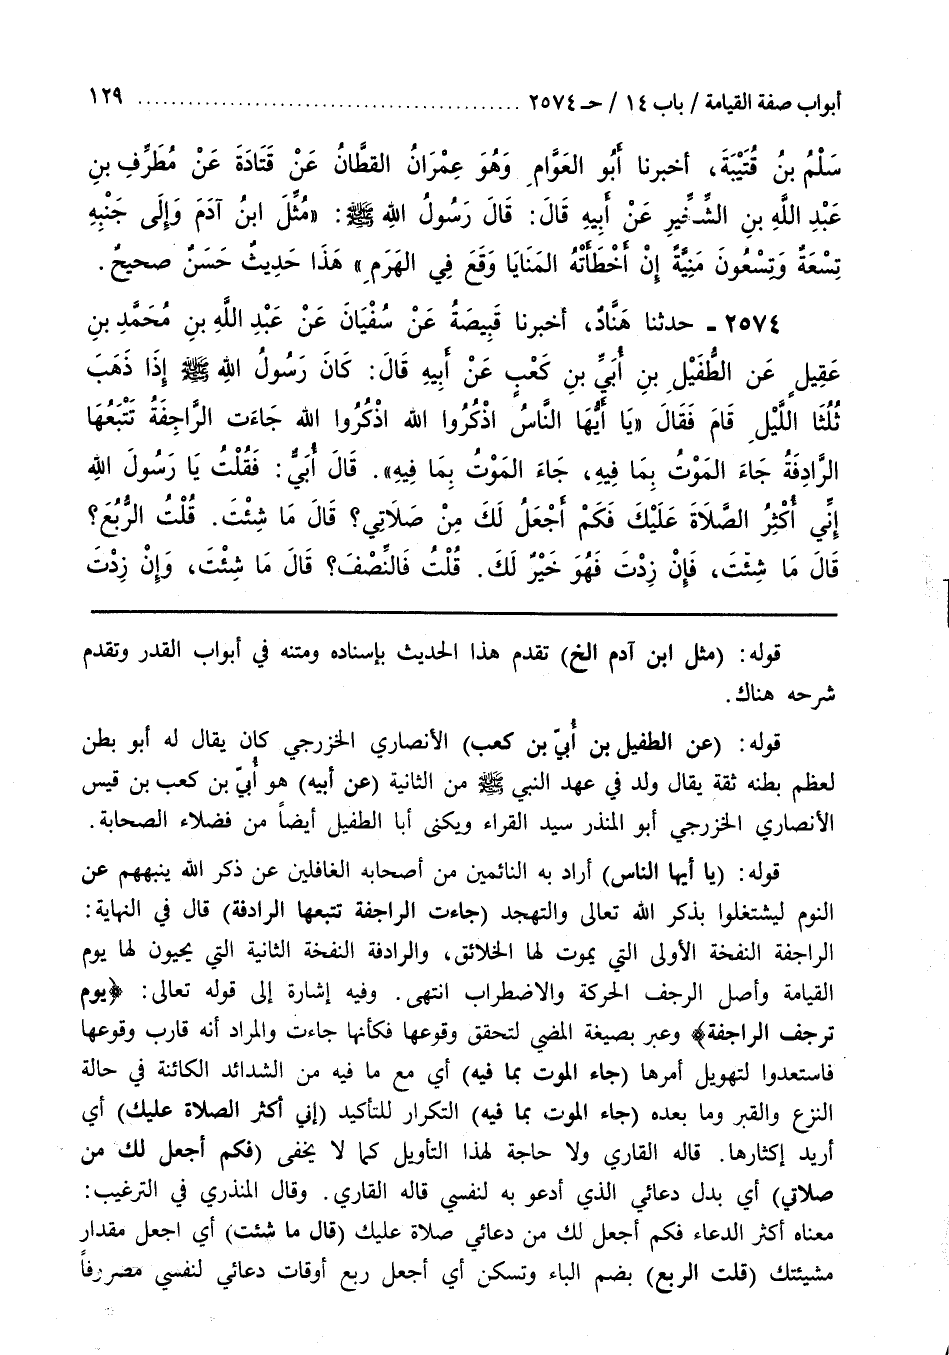 أبواب صفة القيامة / باب ١٤ / حـ ٢٥٧٤ ............................................ ١٢٩
سَلْمُ بنُ قُتَيْبَةَ، أخبرنا أَبُو العَوَّامِ وَهُوَ عِمْرَانُ القطَّانُ عَنْ قَتَادَةَ عَنْ مُطَرِّفِ بنِ
عَبْدِ اللَّهِ بنِ الشِّخِّيرِ عَنْ أَبِيهِ قَالَ: قَالَ رَسُولُ اللهِ ﷺ: «مُثِّلَ ابنُ آدَمَ وَإِلَى جَنْبِهِ
تِسْعَةٌ وَتِسْعُونَ مَنِيَّةً إنْ أَخْطَأَتْهُ المَنَايَا وَقَعَ فِي الهَرَمِ» هَذَا حَدِيثٌ حَسَنٌ صحيحٌ.
٢٥٧٤ ـ حدثنا هَنَّادٌ، أخبرنا قَبِيصَةُ عَنْ سُفْيَانَ عَنْ عَبْدِ اللَّهِ بنِ مُحَمَّدِ بنِ
عَقِيلٍ عَن الطُّفَيْلِ بنِ أُبَيِّ بنِ كَعْبٍ عَنْ أَبِيهِ قَالَ: كَانَ رَسُولُ اللهِ ﷺ إذَا ذَهَبَ
ثُلُثَا اللَّيْلِ قَامَ فَقَالَ «يَا أَيُّهَا النَّاسُ اذْكُرُوا الله اذْكُرُوا الله جَاءَت الرَّاجِفَةُ تَتْبَعُهَا
الرَّادِفَةُ جَاءَ المَوْتُ بِمَا فِيهِ، جَاءَ المَوْتُ بِمَا فِيهِ». قَالَ أُبَيٌّ: فَقُلْتُ يَا رَسُولَ اللهِ
إنِّي أُكْثِرُ الصَّلَاةَ عَلَيْكَ فَكَمْ أَجْعَلُ لَكَ مِنْ صَلَاتِي؟ قَالَ مَا شِئْتَ. قُلْتُ الرُّبُعَ؟
قَالَ مَا شِئْتَ، فَإِنْ زِدْتَ فَهُوَ خَيْرٌ لَكَ. قُلْتُ فَالنِّصْفَ؟ قَالَ مَا شِئْتَ، وَإِنْ زِدْتَ
قوله: (مثل ابن آدم الخ) تقدم هذا الحديث بإسناده ومتنه في أبواب القدر وتقدم
شرحه هناك.
قوله: (عن الطفيل بن أُبيّ بن كعب) الأنصاري الخزرجي كان يقال له أبو بطن
لعظم بطنه ثقة يقال ولد في عهد النبي ﷺ من الثانية (عن أبيه) هو أُبيّ بن كعب بن قيس
الأنصاري الخزرجي أبو المنذر سيد القراء ويكنى أبا الطفيل أيضاً من فضلاء الصحابة.
قوله: (يا أيها الناس) أراد به النائمين من أصحابه الغافلين عن ذكر الله ينبههم عن
النوم ليشتغلوا بذكر الله تعالى والتهجد (جاءت الراجفة تتبعها الرادفة) قال في النهاية:
الراجفة النفخة الأولى التي يموت لها الخلائق، والرادفة النفخة الثانية التي يحيون لها يوم
القيامة وأصل الرجف الحركة والاضطراب انتهى. وفيه إشارة إلى قوله تعالى: ﴿يوم
ترجف الراجفة﴾ وعبر بصيغة المضي لتحقق وقوعها فكأنها جاءت والمراد أنه قارب وقوعها
فاستعدوا لتهويل أمرها (جاء الموت بما فيه) أي مع ما فيه من الشدائد الكائنة في حالة
النزع والقبر وما بعده (جاء الموت بما فيه) التكرار للتأكيد (إني أكثر الصلاة عليك) أي
أريد إكثارها. قاله القاري ولا حاجة لهذا التأويل كما لا يخفى (فكم أجعل لك من
صلاتي) أي بدل دعائي الذي أدعو به لنفسي قاله القاري. وقال المنذري في الترغيب:
معناه أكثر الدعاء فكم أجعل لك من دعائي صلاة عليك (قال ما شئت) أي اجعل مقدار
مشيئتك (قلت الربع) بضم الباء وتسكن أي أجعل ربع أوقات دعائي لنفسي مصروفاً